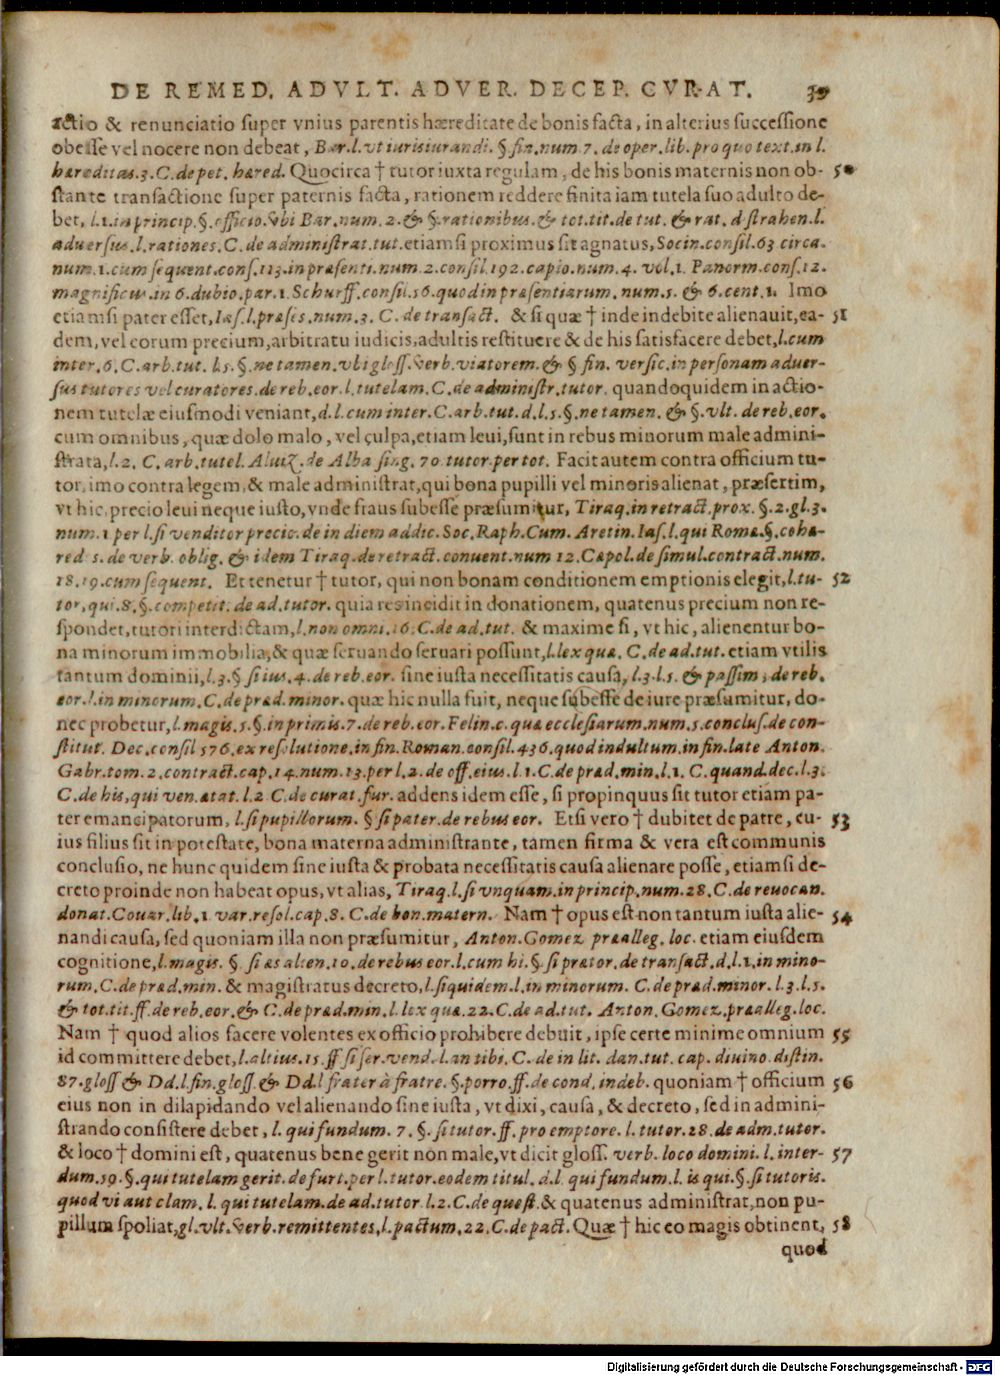 DE REMED. ADVLT. ADVER. DECEP. CVRAT. 39
actio & renunciatio super vnius parentis hæreditate de bonis facta, in alterius successione
obesse vel nocere non debeat, Bar. l. vt iurisiurandi. §. fin. num. 7. de oper. lib. pro quo text. in l.
hæreditas. 3. C. de pet. hæred. Quocirca † tutor iuxta regulam, de his bonis maternis non ob- 50
stante transactione super paternis facta, rationem reddere finita iam tutela suo adulto de-
bet, l. 1. in princip. §. officio. vbi Bar. num. 2. & §. rationibus. & tot. tit. de tut. & rat. distrahen. l.
aduersus. l. rationes. C. de administrat. tut. etiamsi proximus sit agnatus, Socin. consil. 63 circa.
num. 1. cum sequent. cons. 113. in præsenti. num. 2. consil. 192. capio. num. 4. vol. 1. Panorm. cons. 12.
magnificus. in 6. dubio. par. 1. Schurff. consil. 56. quod in præsentiarum. num. 5. & 6. cent. 1. Imo
etiamsi pater esset, Ias. l. præses. num. 3. C. de transact. & si quæ † inde indebite alienauit, ea- 51
dem, vel eorum precium, arbitratu iudicis, adultis restituere & de his satisfacere debet, l. cum
inter. 6. C. arb. tut. l. 5. §. ne tamen. vbi gloss. verb. viatorem. & § fin. versic. in personam aduer-
sus tutores vel curatores. de reb. eor. l. tutelam. C. de administr. tutor. quandoquidem in actio-
nem tutelæ eiusmodi veniant, d. l. cum inter. C. arb. tut. d. l. 5. §. ne tamen. & §. vlt. de reb. eor.
cum omnibus, quæ dolo malo, vel culpa, etiam leui, sunt in rebus minorum male admini-
strata, l. 2. C. arb. tutel. Aluiz. de Alba sing. 70. tutor. per tot. Facit autem contra officium tu-
tor, imo contra legem, & male administrat, qui bona pupilli vel minoris alienat, præsertim,
vt hic, precio leui neque iusto, vnde fraus subesse præsumitur, Tiraq. in retract. prox. §. 2. gl. 3.
num. 1 per l. si venditor precio. de in diem addic. Soc. Raph. Cum. Aretin. Ias. l. qui Romæ. §. cohæ-
red s. de verb. oblig. & idem Tiraq. de retract. conuent. num 12. Capol. de simul. contract. num.
18. 19. cum sequent. Et tenetur † tutor, qui non bonam conditionem emptionis elegit, l. tu- 52
tor, qui. 8. §. competit. de ad. tutor. quia res incidit in donationem, quatenus precium non re-
spondet, tutori interdictam, l. non omni. 16. C. de ad. tut. & maxime si, vt hic, alienentur bo-
na minorum immobilia, & quæ seruando seruari possunt, l. lex quæ. C. de ad. tut. etiam vtilis
tantum dominii, l. 3. § si ius. 4. de reb. eor. sine iusta necessitatis causa, l. 3. l. 5. & passim, de reb.
eor. l. in minorum. C. de præd. minor. quæ hic nulla fuit, neque subesse de iure præsumitur, do-
nec probetur, l. magis. 5. §. in primis. 7. de reb. eor. Felin. c. quæ ecclesiarum. num. 5. conclus. de con-
stitut. Dec. consil 576. ex resolutione. in fin. Roman. consil. 436. quod indultum. in fin. late Anton.
Gabr. tom. 2. contract. cap. 14. num. 13. per l. 2. de off. eius. l. 1. C. de præd. min. l. 1. C. quand. dec. l. 3.
C. de his, qui ven. ætat. l. 2 C. de curat. fur. addens idem esse, si propinquus sit tutor etiam pa-
ter emancipatorum, l. si pupillorum. § si pater. de rebus eor. Etsi vero † dubitet de patre, cu- 53
ius filius sit in potestate, bona materna administrante, tamen firma & vera est communis
conclusio, ne hunc quidem sine iusta & probata necessitatis causa alienare posse, etiamsi de-
creto proinde non habeat opus, vt alias, Tiraq. l. si vnquam. in princip. num. 28. C. de reuocan.
donat. Couar. lib. 1 var. resol. cap. 8. C. de bon. matern. Nam † opus est non tantum iusta alie- 54
nandi causa, sed quoniam illa non præsumitur, Anton. Gomez præalleg. loc. etiam eiusdem
cognitione, l. magis. §. si æs alien. 10. de rebus eor. l. cum hi. §. si prætor. de transact. d. l. 1. in mino-
rum. C. de præd. min. & magistratus decreto, l. si quidem. l. in minorum. C. de præd. minor. l. 3. l. 5.
& tot. tit. ff. de reb. eor. & C. de præd. min. l. lex quæ. 22. C. de ad. tut. Anton. Gomez. præalleg. loc.
Nam † quod alios facere volentes ex officio prohibere debuit, ipse certe minime omnium 55
id committere debet, l. altius. 15. ff si ser. vend. l. an tibi. C. de in lit. dan. tut. cap. diuino. distin.
87. gloss & Dd. l. fin. gloss. & Dd. l frater à fratre. §. porro. ff. de cond. indeb. quoniam † officium 56
eius non in dilapidando vel alienando sine iusta, vt dixi, causa, & decreto, sed in admini-
strando consistere debet, l. qui fundum. 7. §. si tutor. ff. pro emptore. l. tutor. 28. de adm. tutor.
& loco † domini est, quatenus bene gerit non male, vt dicit gloss. verb. loco domini. l. inter- 57
dum. 59. §. qui tutelam gerit. de furt. per l. tutor. eodem titul. d. l. qui fundum. l. is qui. §. si tutoris.
quod vi aut clam. l. qui tutelam. de ad. tutor. l. 2. C. de quæst. & quatenus administrat, non pu-
pillum spoliat, gl. vlt. verb. remittentes, l. pactum. 22. C. de pact. Quæ † hic eo magis obtinent, 58
quod
Digitalisierung gefördert durch die Deutsche Forschungsgemeinschaft - DFG